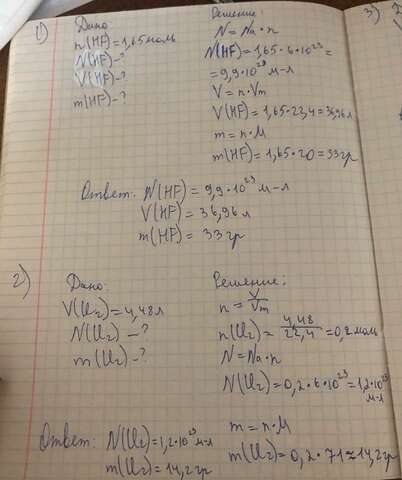 1)
Дано:
n(HF)=1,65 моль
N(HF)-?
V(HF)-?
m(HF)-?
Решение:
N=Na·n
N(HF)=1,65·6·10²³=
=9,9·10²³ м-л
V=n·Vm
V(HF)=1,65·22,4=36,96л
m=n·M
m(HF)=1,65·20=33гр
Ответ: N(HF)=9,9·10²³ м-л
V(HF)=36,96 л
m(HF)=33гр
2)
Дано:
V(Cl₂)=4,48л
N(Cl₂)-?
m(Cl₂)-?
Решение:
n=V/Vm
n(Cl₂)=4,48/22,4=0,2моль
N=Na·n
N(Cl₂)=0,2·6·10²³=1,2·10²³
м-л
m=n·M
m(Cl₂)=0,2·71≈14,2гр
Ответ: N(Cl₂)=1,2·10²³ м-л
m(Cl₂)=14,2гр
3)